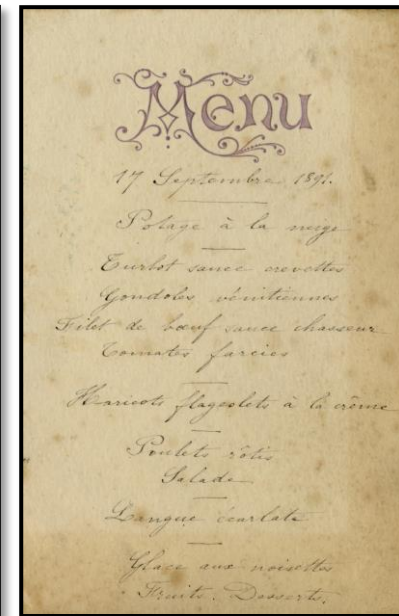 Menu
17 Septembre 1891.
Potage à la neige
Turbot sauce crevettes
Gondoles vénitiennes
Filet de bœuf sauce chasseur
Tomates farcies
Haricots flageolets à la crème
Poulets rôtis
Salade
Langue écarlate
Glace aux noisettes
Fruits. Desserts.